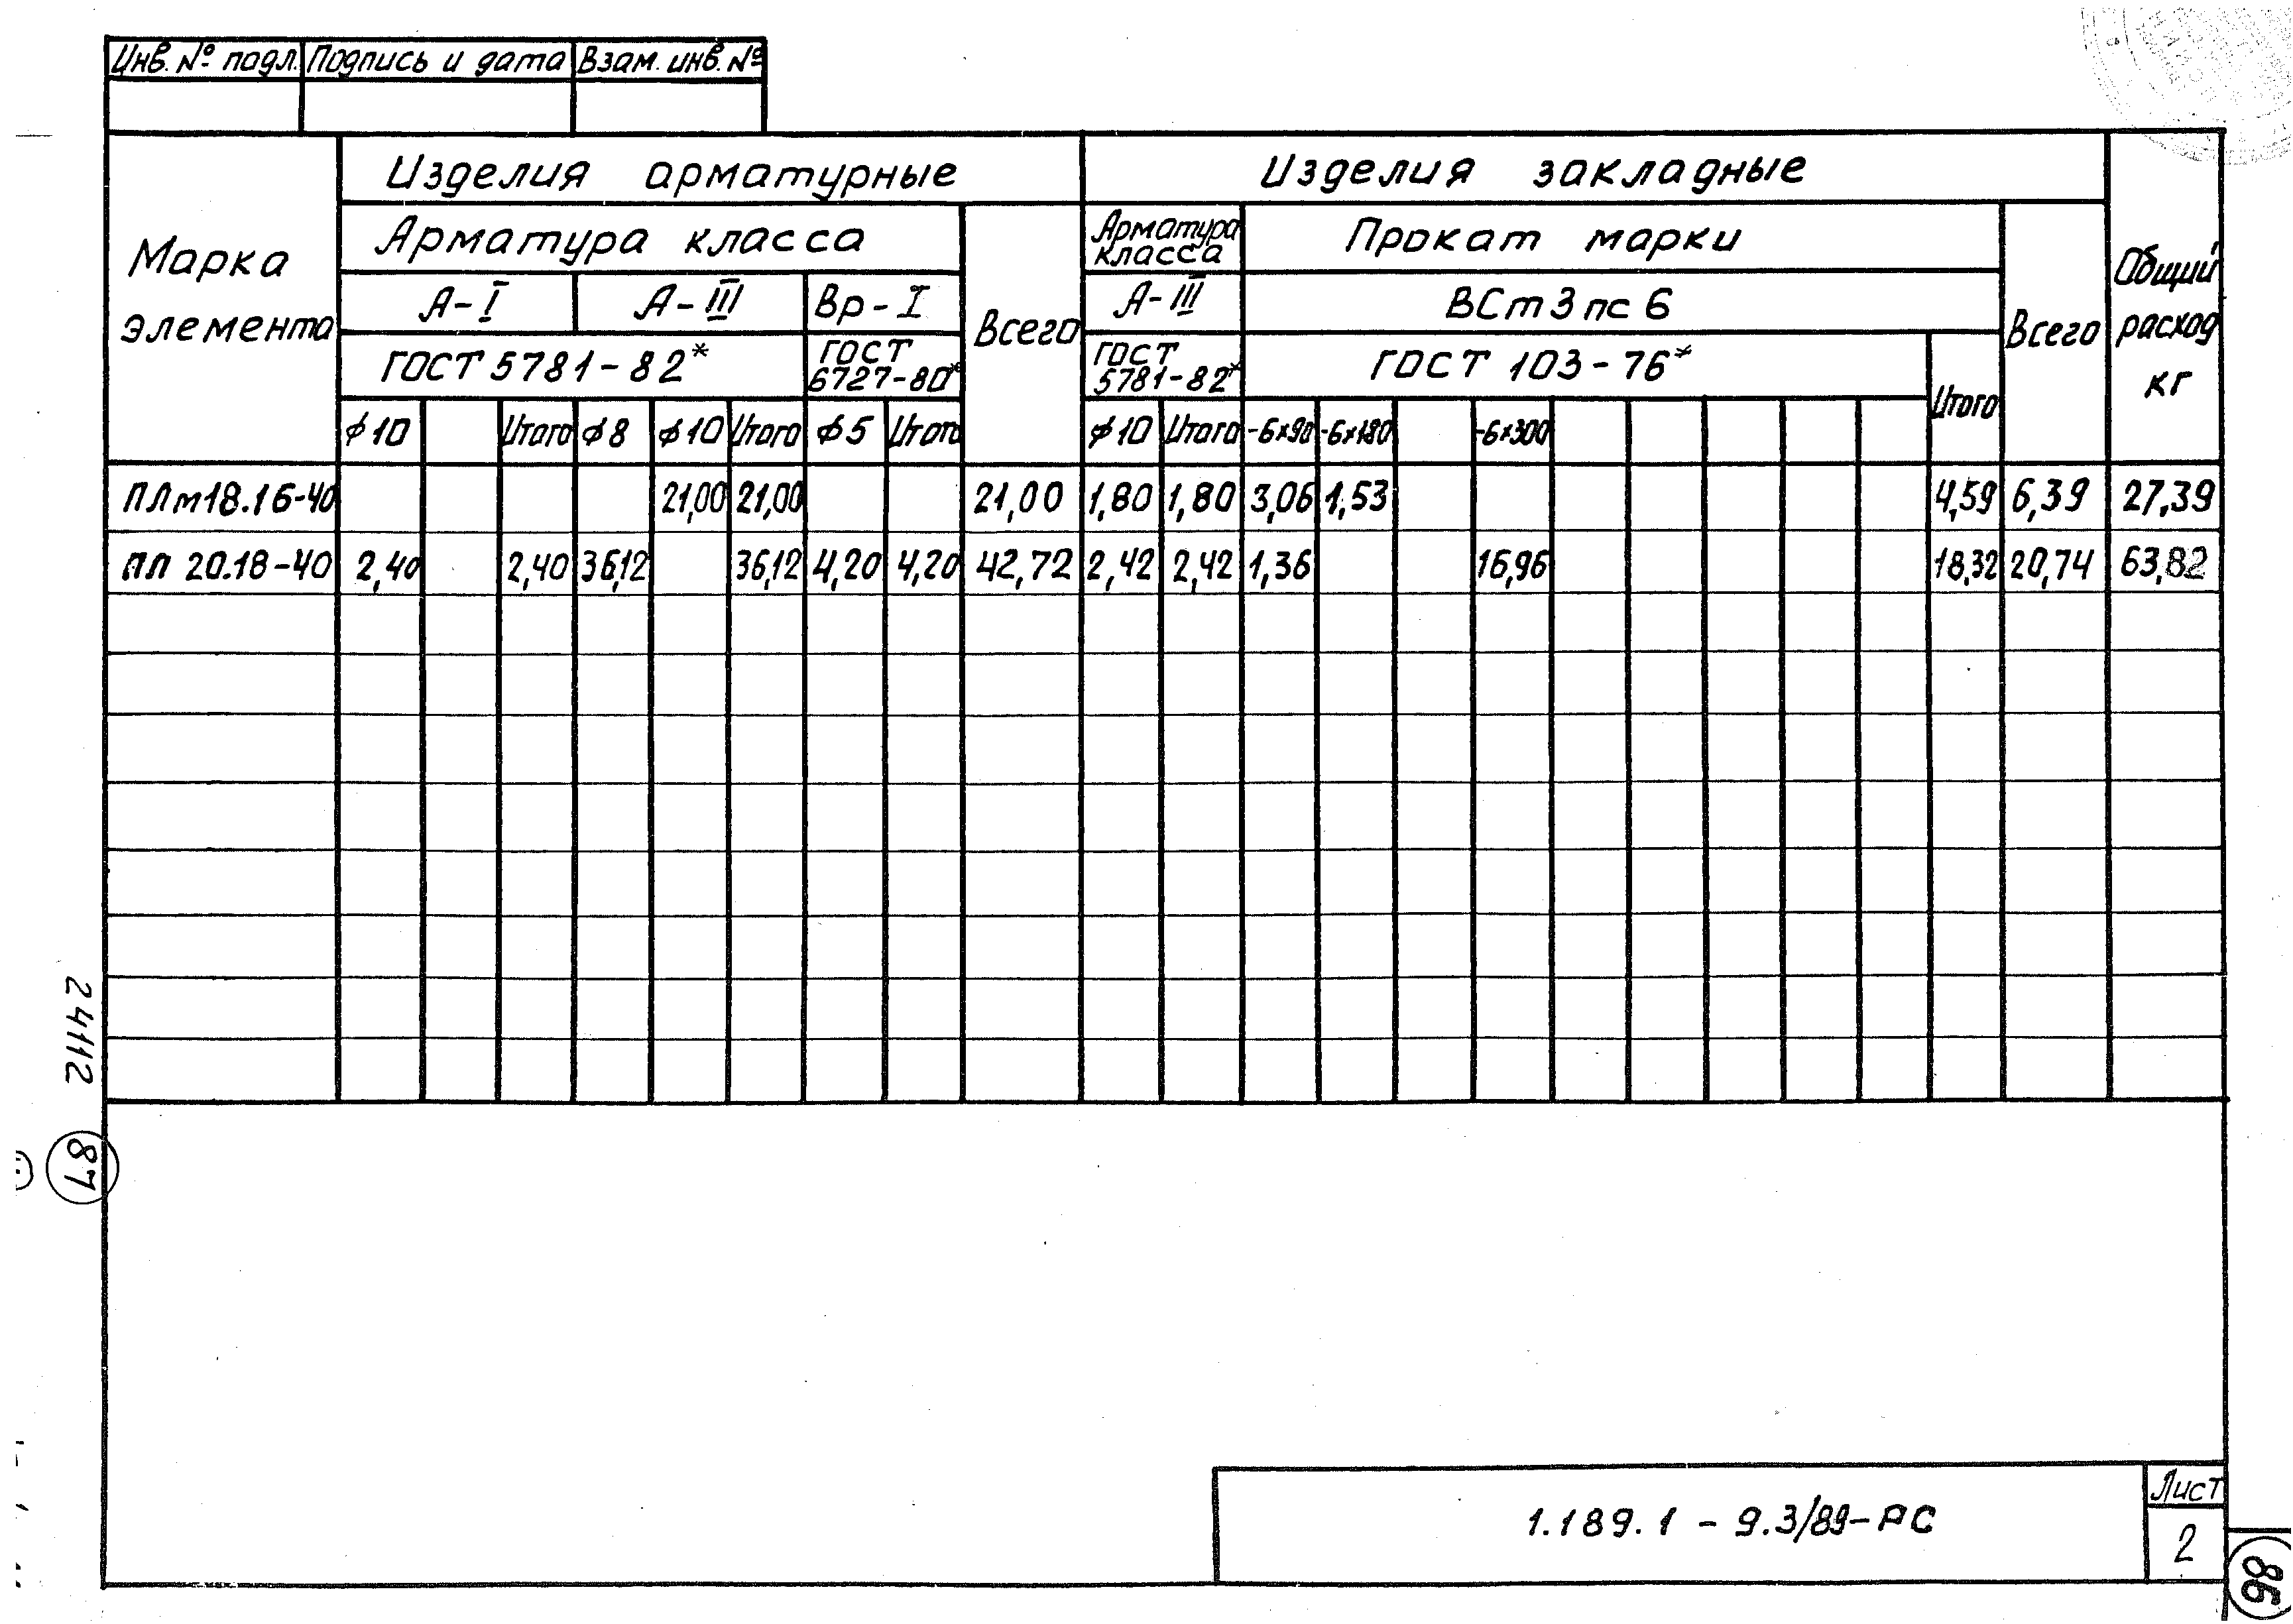 Инв. № подл. Подпись и дата Взам. инв. №
Марка элемента
Изделия арматурные
Изделия закладные
Общий расход кг
Арматура класса
Всего
Арматура класса
Прокат марки
Всего
А-I А-III Вр-I А-III ВСт3пс6
ГОСТ 5781-82* ГОСТ 6727-80* ГОСТ 5781-82* ГОСТ 103-76* Итого
ф10 Итого ф8 ф10 Итого ф5 Итого ф10 Итого -6х90 -6х180 -6х300
ПЛм18.16-40 21,00 21,00 21,00 1,80 1,80 3,06 1,53 4,59 6,39 27,39
ПЛ 20.18-40 2,40 2,40 36,12 36,12 4,20 4,20 42,72 2,42 2,42 1,36 16,96 18,32 20,74 63,82
24112
87
1.189.1 - 9.3/89-РС
Лист
2
86